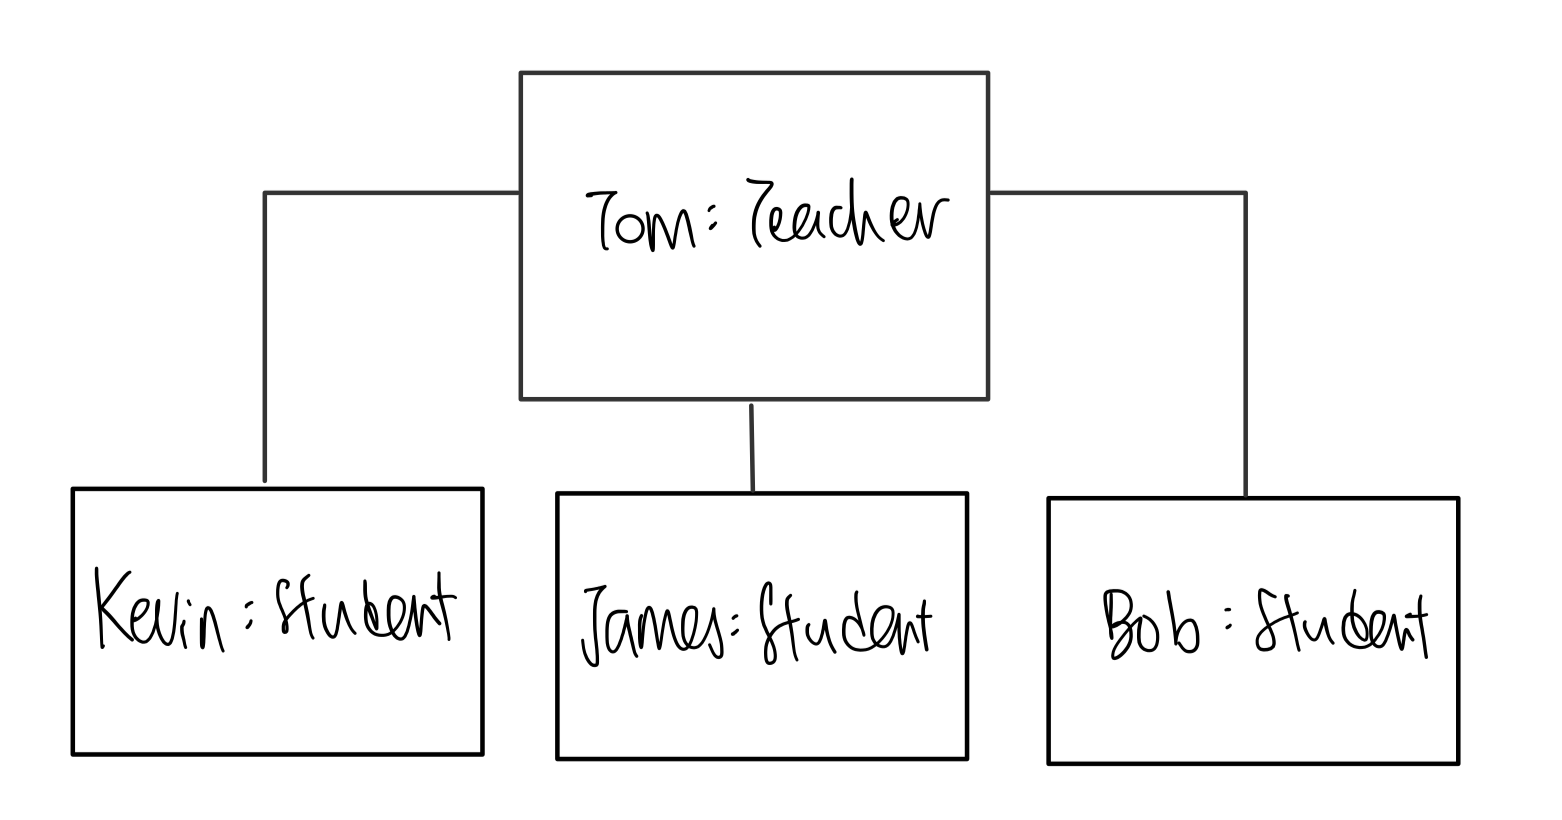 Tom: Teacher
Kevin: Student
James: Student
Bob: Student